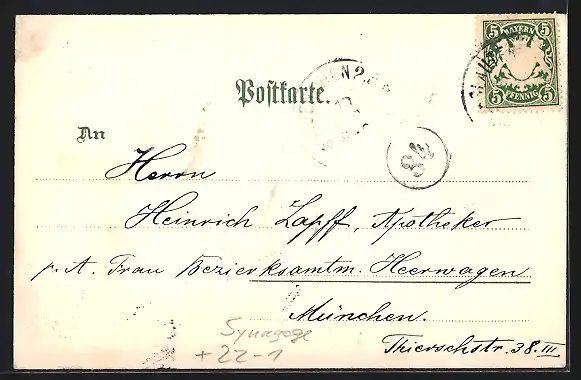 5 BAYERN 5
5 PFENNIG 5
Postkarte.
An
84
Herrn
Heinrich Zapff, Apotheker
p. A. Frau Bezirksamtm. Heerwagen
München.
Thierschstr. 38. III
Synagoge
+ 22-1